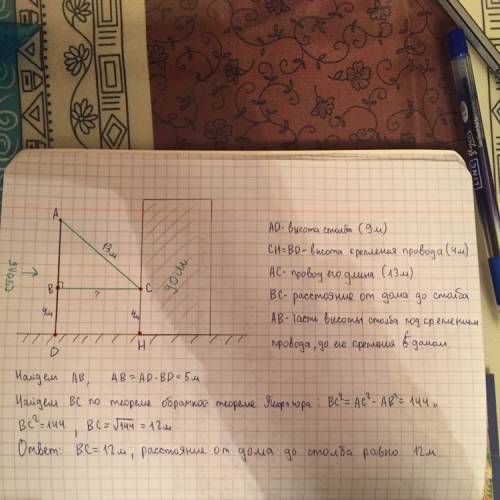 A
13м
столб
B
?
C
дом
4м
4м
D
H
AD - высота столба (9м)
CH=BD - высота крепления провода (4м)
AC - провод его длина (13м)
BC - расстояние от дома до столба
AB - часть высоты столба под креплением
провода, до его крепления с домом.
Найдем AB, AB = AD - BD = 5м
Найдем BC по теореме обратной теореме Пифагора: BC² = AC² - AB² = 144м
BC² = 144, BC = √144 = 12м
Ответ: BC = 12м, расстояние от дома до столба равно 12м.